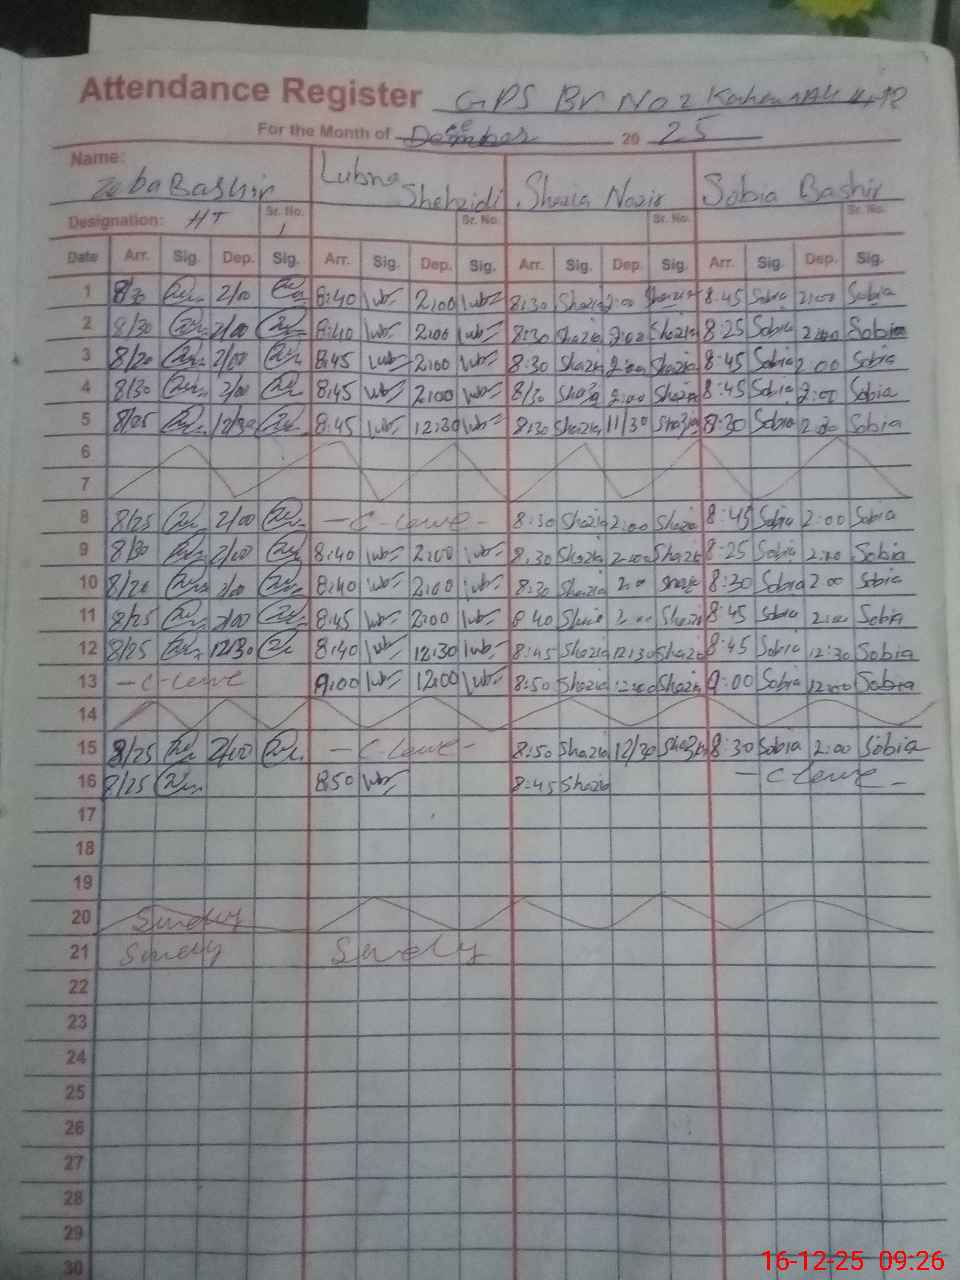 Attendance Register GPS Br No 2
For the Month of December 20 25
Name: Zeba Bashir Lubna Shehzidi Shazia Nazir Sobia Bashir
Designation: HT Sr. No. 1 Sr. No. Sr. No. Sr. No.
Date Arr. Sig. Dep. Sig. Arr. Sig. Dep. Sig. Arr. Sig. Dep. Sig. Arr. Sig. Dep. Sig.
1 8/30 2/00 8:40 lub 2:00 lub 8:30 Shazia 2:00 Shazia 8:45 Sobia 2:00 Sobia
2 8/30 2/00 8:40 lub 2:00 lub 8:30 Shazia 2:00 Shazia 8:25 Sobia 2:00 Sobia
3 8/20 2/00 8:45 lub 2:00 lub 8:30 Shazia 2:00 Shazia 8:45 Sobia 2:00 Sobia
4 8/30 2/00 8:45 lub 2:00 lub 8/30 Shazia 2:00 Shazia 8:45 Sobia 2:00 Sobia
5 8/25 12/30 8:45 lub 12:30 lub 8:30 Shazia 11/30 Shazia 8:30 Sobia 2:00 Sobia
6
7
8 8/25 2/00 - C-Leave - 8:30 Shazia 2:00 Shazia 8:45 Sobia 2:00 Sobia
9 8/30 2/00 8:40 lub 2:00 lub 8:30 Shazia 2:00 Shazia 8:25 Sobia 2:00 Sobia
10 8/20 2/00 8:40 lub 2:00 lub 8:30 Shazia 2:00 Shazia 8:30 Sobia 2:00 Sobia
11 8/25 2/00 8:45 lub 2:00 lub 8:40 Shazia 2:00 Shazia 8:45 Sobia 2:00 Sobia
12 8/25 12/30 8:40 lub 12:30 lub 8:45 Shazia 12:30 Shazia 8:45 Sobia 12:30 Sobia
13 - C-Leave 9:00 lub 12:00 lub 8:50 Shazia 12:00 Shazia 9:00 Sobia 12:00 Sobia
14
15 8/25 2/00 - C-Leave - 8:50 Shazia 12/30 Shazia 8:30 Sobia 2:00 Sobia
16 8/25 8:50 lub 8:45 Shazia - C Leave -
17
18
19
20 Sundy
21 Sundy Sundy
22
23
24
25
26
27
28
29
30
16-12-25 09:26